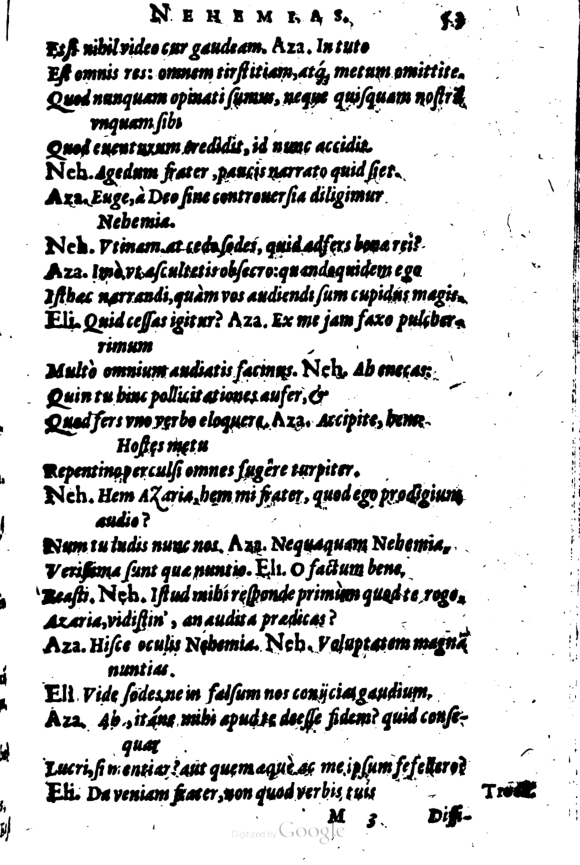 NEHEMIAS. 53
Est nihil video cur gaudeam. Aza. In tuto
Est omnis res: omnem tirstitiam, atq; metum omittite.
Quod nunquam opinati sumus, neque quisquam nostrũ
vnquam sibi
Quod euenturum credidit, id nunc accidit.
Neh. Agedum frater, paucis narrato quid siet.
Aza. Euge, à Deo sine controuersia diligimur
Nehemia.
Neh. Vtinam. at cedo sodes, quid adfers bonæ rei?
Aza. Imò, vt ascultetis obsecro: quandoquidem ego
Isthac narrandi, quàm vos audiendi sum cupidus magis.
Eli. Quid cessas igitur? Aza. Ex me jam faxo pulcher-
rimum
Multò omnium audiatis facinus. Neh. Ah enecas:
Quin tu hinc pollicitationes aufer, &
Quod fers vno verbo eloquere. Aza. Accipite, hem.
Hostes metu
Repentino perculsi omnes fugêre turpiter.
Neh. Hem Azaria, hem mi frater, quod ego prodigium
audio?
Num tu ludis nunc nos. Aza. Nequaquam Nehemia,
Verissima sunt quæ nuntio. Eli. O factum bene,
Beasti. Neh. Istud mihi responde primùm quod te rogo,
Azaria, vidistin', an audita prædicas?
Aza. Hisce oculis Nehemia. Neh. Voluptatem magnã
nuntias.
Eli. Vide sodes, ne in falsum nos conijcias gaudium,
Aza. Ah, itáne mihi apud te deesse fidem? quid conse-
quar
Lucri, si mentiar? aut quem æquè ac me ipsum fefellero?
Eli. Da veniam frater, non quod verbis tuis
M 3 Diffi-
Digitized by Google